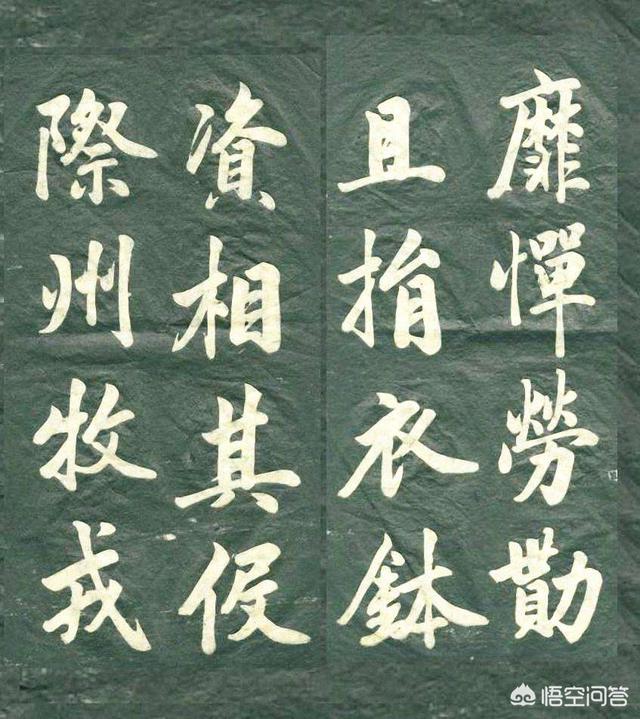 靡憚勞勩
且捐衣鉢
資相其役
際州牧戎
悟空问答